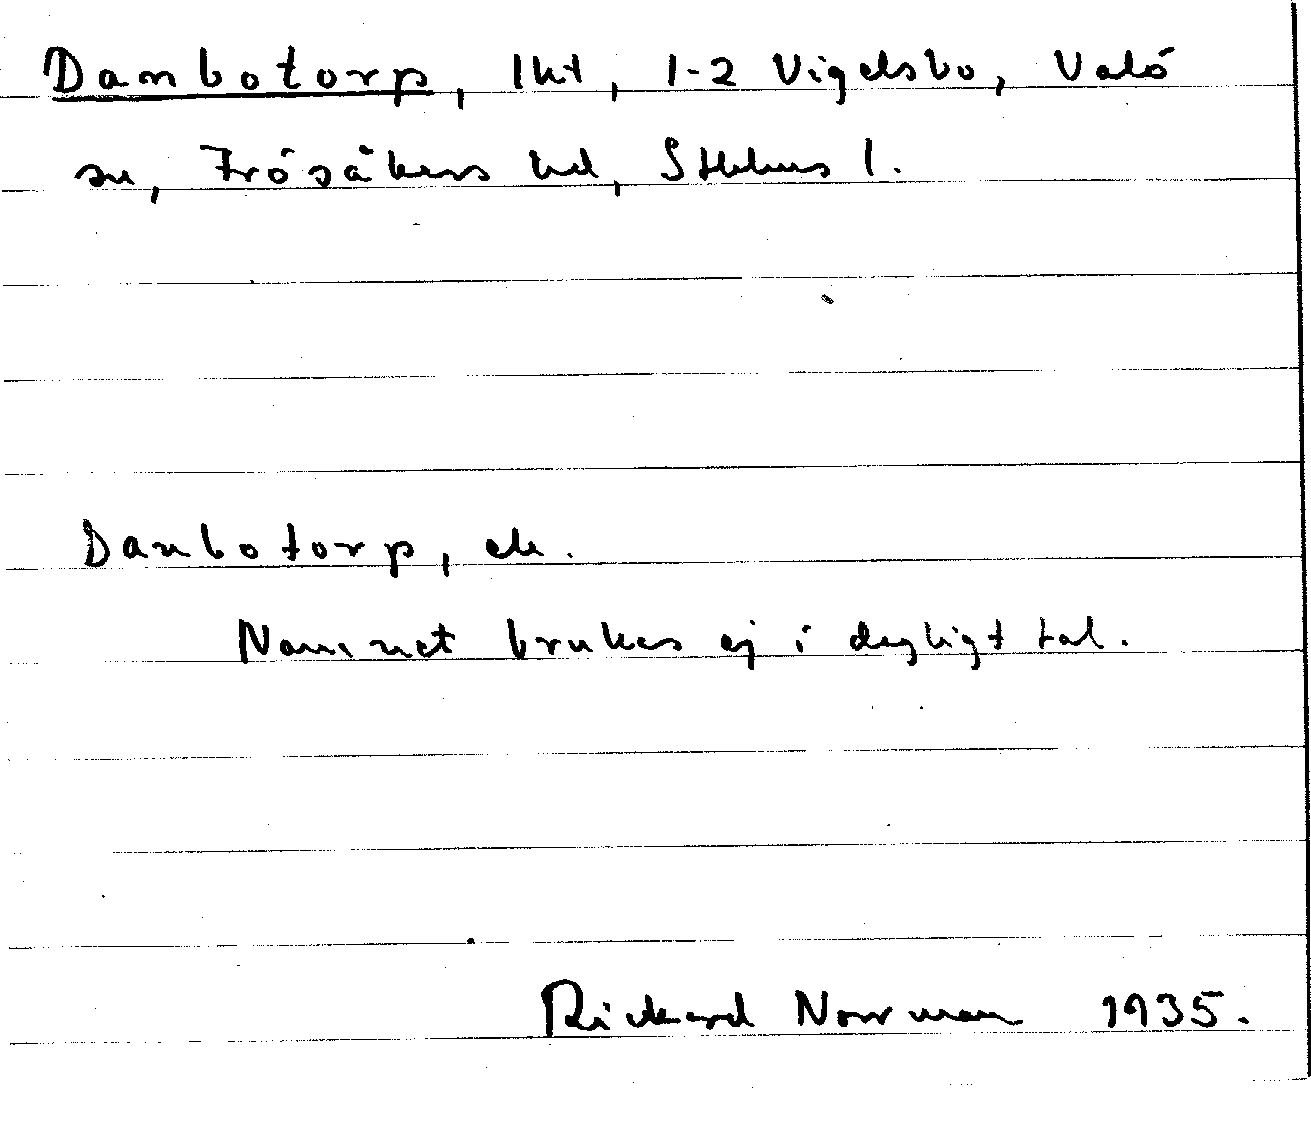 Danbotorp, lht, 1-2 Vigelsbo, Valö
sn, Frösåkers hd, Sthlms l.
Danbotorp, ek.
Namnet brukas ej i dagligt tal.
Rickard Norrman 1935.